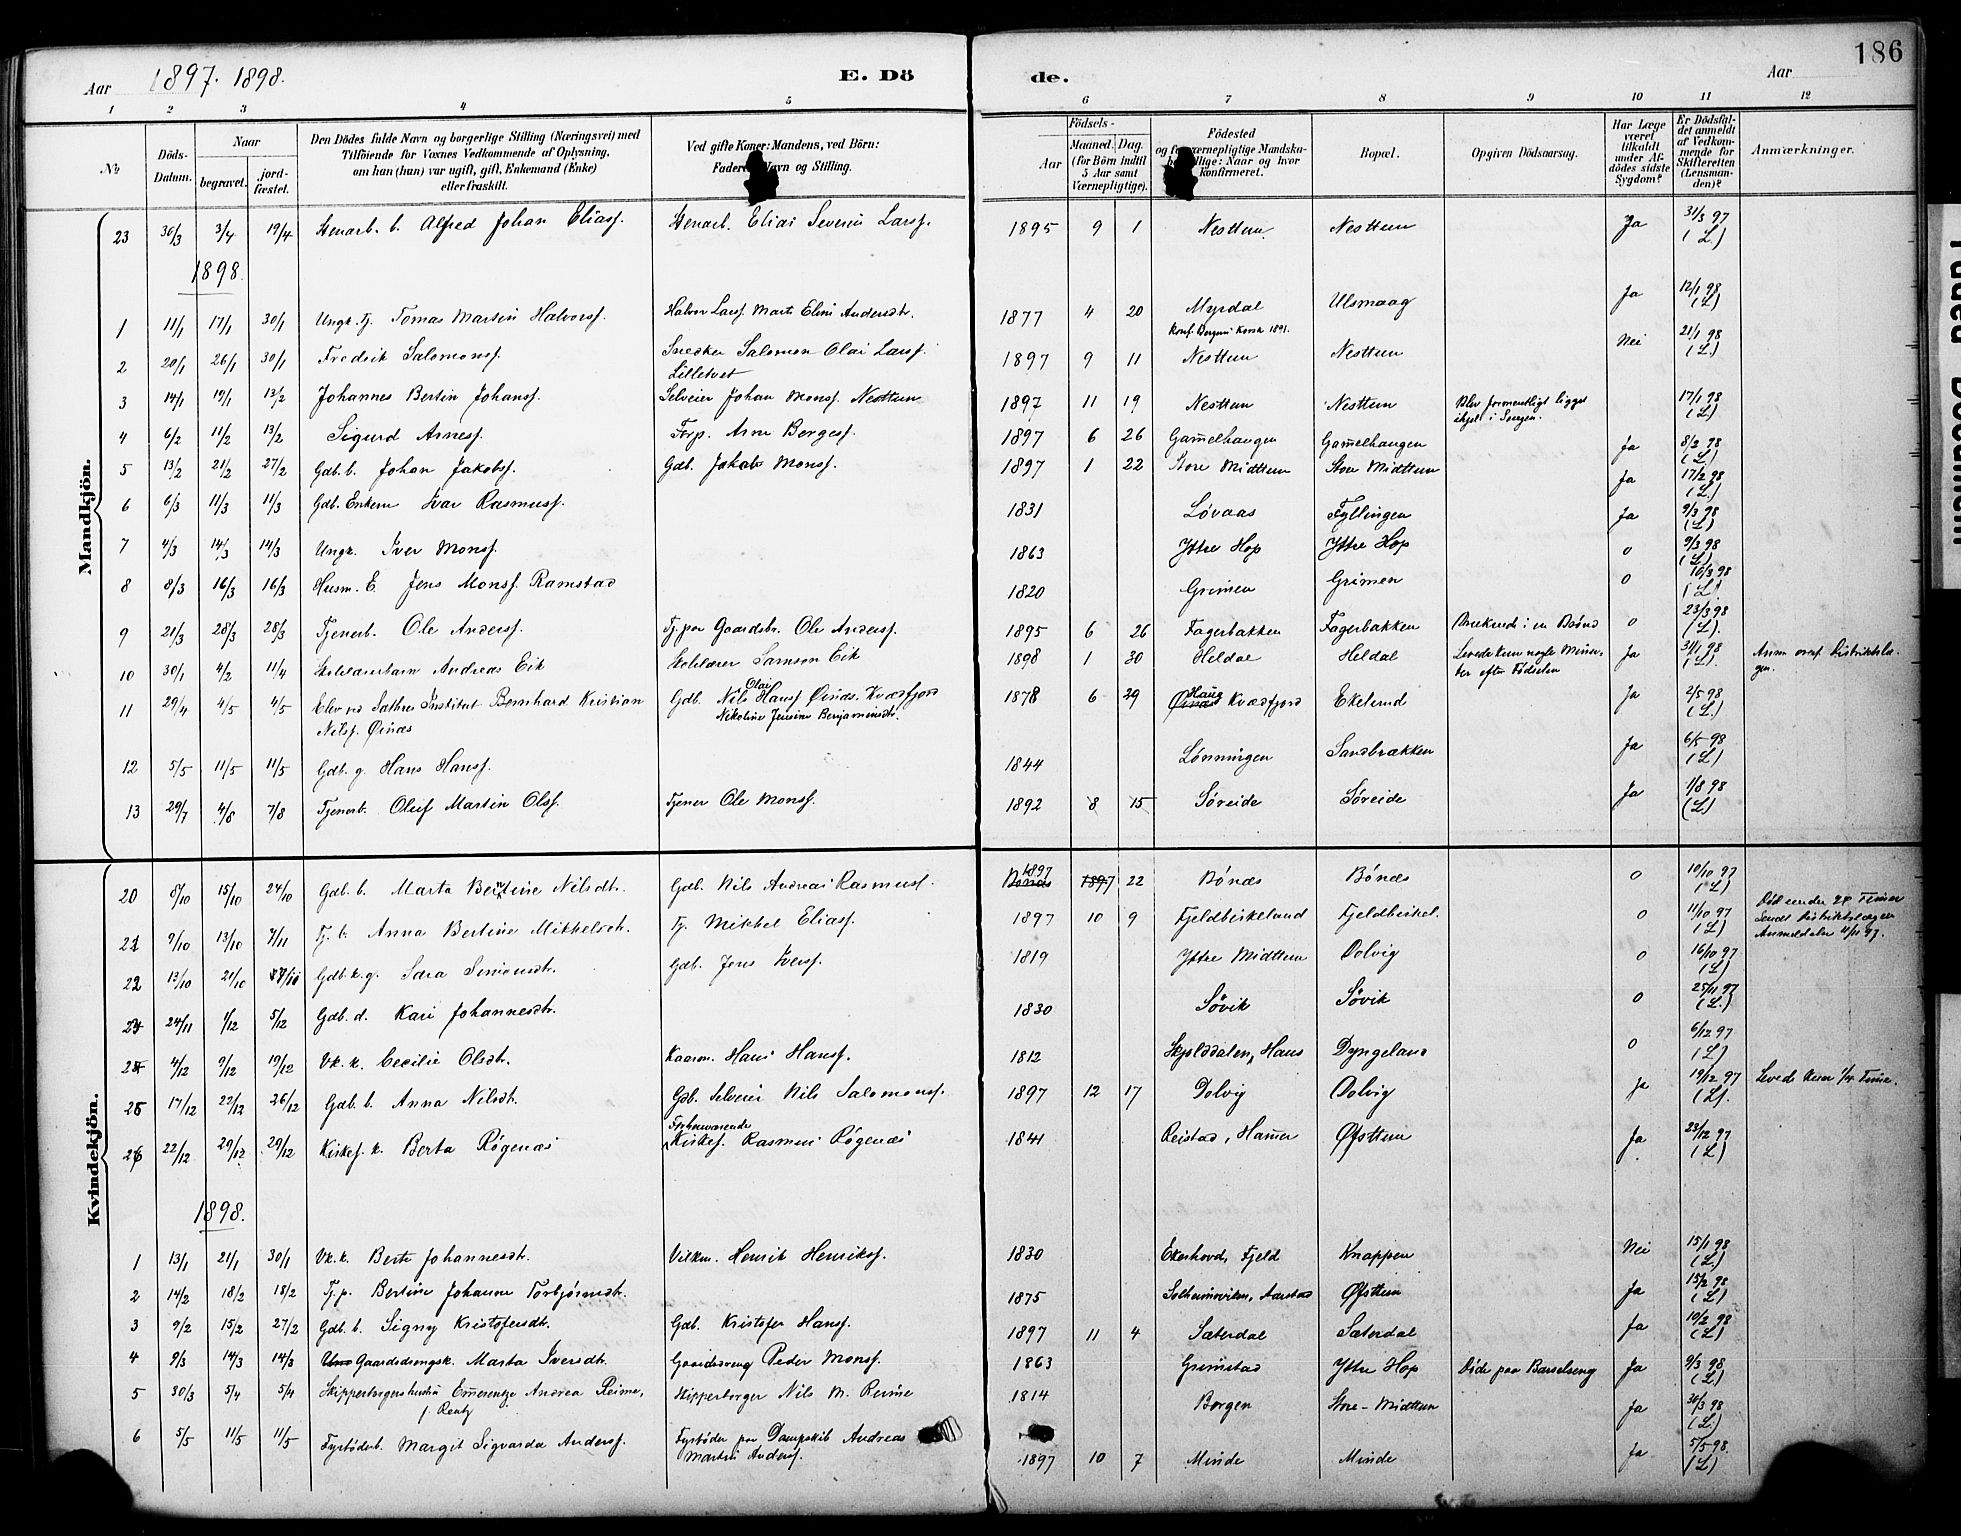 186
Aar 1897. 1898. E. Dö de. Aar
1 2 3 4 5 6 7 8 9 10 11 12
No Döds-Datum. Naar begravet. jord-fæstet. Den Dödes fulde Navn og borgerlige Stilling (Næringsvei) med Tilföiende for Voxnes Vedkommende af Oplysning, om han (hun) var ugift, gift, Enkemand (Enke) eller fraskilt. Ved gifte Koner: Mandens, ved Börn: Faderens Navn og Stilling. Födsels- Aar Maaned. Dag. (for Börn indtil 5 Aar samt Værnepligtige). Födested og for værnepligtige Mandskaber tillige: Naar og hvor konfirmeret. Bopæl. Opgiven Dödsaarsag. Har Læge været tilkaldt under Afdödes sidste Sygdom? Er Dödsfaldet anmeldt af Vedkommende for Skifteretten (Lensmanden)? Anmærkninger.
Mandkjön.
23 30/3 3/4 19/4 Stenarb. b. Alfred Johan Eliasf. Stenarb. Elias Severin Larsf. 1895 9 1 Nesttun Nesttun Ja 31/3 97 (L)
1898.
1 11/1 17/1 30/1 Ungk. Tj. Tomas Martin Halvorsf. Halvor Larsf. Marti Elini Andersdtr. 1877 4 20 Myrdal Konf. Bergens Korsk 1891. Ulsmaag Ja 12/1 98 (L)
2 20/1 26/1 30/1 Fredrik Salomonsf. Snedker Salomon Olai Larsf. Lilletvet 1897 9 11 Nesttun Nesttun Nei 21/1 98 (L.)
3 14/1 19/1 13/2 Johannes Bertin Johansf. Selveier Johan Monsf. Nesttun 1897 11 19 Nesttun Nesttun Blev formentligt ligget ihjel i Sengen. 17/1 98 (L)
4 6/2 11/2 13/2 Sigurd Arnesf. Forp. Arne Borgesf. 1897 6 26 Gamelhaugen Gamelhaugen Ja 8/2 98 (L)
5 13/2 21/2 27/2 Gdb. b. Johan Jakobsf. Gdb. Jakob Monsf. 1897 1 22 Store Midttun Store Midttun Ja 17/2 98 (L.)
6 6/3 11/3 11/3 Gdb. Enkem Ivar Rasmusf. 1831 Løvaas Fyllingen Ja 9/3 98 (L)
7 4/3 14/3 14/3 Ungk. Iver Monsf. 1863 Ytre Hop Ytre Hop o 9/3 98 (L)
8 8/3 16/3 16/3 Husm. E. Jens Monsf. Ramstad 1820 Grimen Grimen o 16/3 98 (L)
9 21/3 28/3 28/3 Tjenerb. Ole Andersf. Tj. paa Gaardsbr. Ole Andersf. 1895 6 26 Fagerbakken Fagerbakken Druknede i en Brønd o 23/3 98 (L).
10 30/1 4/2 11/4 Skolelærerbarn Andreas Eik Skolelærer Samson Eik 1898 1 30 Heldal Heldal Levede kun nogle Minuter efter Fødselen Ja 31/1 98 (L). Anm oversf. Distriktslægen.
11 29/4 4/5 4/5 Elev ved Sathres Institut Bernhard Kristian Nilsf. Øinæs Gdb. Nils Olai Hansf Øinæs. Kvædfjord Nikoline Jensine Benjaminsdtr. 1878 6 29 Haug Kvædfjord Ekelund Ja 2/5 98 (L.)
12 5/5 11/5 11/5 Gdb. g. Hans Hansf. 1844 Lønningen Sandbrækken Ja 6/5 98 (L)
13 29/7 4/8 7/8 Tjenerb. Oluf Martin Olsf. Tjener Ole Monsf. 1892 8 15 Søreide Søreide Ja 1/8 98 (L)
Kvindekjön.
20 8/10 15/10 24/10 Gdb. b. Marta Bertine Nilsdtr. Gdb. Nils Andreas Rasmusf. 1897 22 Bönæs Bönæs o 10/10 97 (L)
21 9/10 13/10 7/11 Tj. b. Anna Bertine Mikkelsdtr. Tj. Mikkel Eliasf. 1897 10 9 Fjeldbirkeland Fjeldbirkel. o 11/10 97 (L) Död under 24 Timer Sendt Distriktslægen Anmeldelse 11/11 97.
22 13/10 21/10 Gdb. k. g. Sara Simonsdtr. Gdb. Jens Iversf. 1819 Ytre Midttun Dolvig o 16/10 97 (L)
23 24/11 1/12 5/12 Gdb. d. Kari Johannesdtr. 1830 Søvik Søvik o 25/11 97 (L.)
24 4/12 9/12 19/12 Vk. k. Cecilie Olsdtr. Kaarm. Hans Hansf. 1812 Skjolddalen, Haus Dyngeland o 6/12 97 (L)
25 17/12 22/12 26/12 Gdb. b. Anna Nilsdtr. Gdb. Selveier Nils Salomonsf. 1897 12 17 Dolvig Dolvig Ja 19/12 97 (L). Levede kun 1/4 Time.
26 22/12 29/12 29/12 Kirkes. k. Berta Røgenæs Forhenværende Kirkes. Rasmus Røgenæs 1841 Reistad, Hamer Øfsttun Ja 23/12 97 (L)
1898.
1 13/1 21/1 30/1 Vk. k. Berte Johannesdtr. Vilkm. Henrik Henriksf. 1830 Ekerhovd, Fjeld Knappen Nei 15/1 98 (L.)
2 14/2 18/2 18/2 Tj. p. Bertine Johanne Torbjørnsdtr. 1875 Solheimsviken, Aarstad Øfsttun Ja 15/2 98 (L)
3 9/2 15/2 27/2 Gdb. b. Signy Kristofersdtr. Gdb. Kristofer Hansf. 1897 11 4 Sæterdal Sæterdal Ja 10/2 98 (L)
4 9/3 14/3 14/3 Gaardsdrengsk. Marta Iversdtr. Gaardsdreng Peder Monsf. 1863 Grimstad Ytre Hop Døde paa Barselseng Ja 9/3 98 (L)
5 30/3 5/4 5/4 Skipperborgershustru Emerentze Andrea Reime, f. Rentz Skipperborger Nils M. Reime 1814 Bergen Store-Midttun Ja 30/3 98 (L)
6 5/5 11/5 11/5 Fyrbøderb. Margit Sigvarda Andersf. Fyrbøder paa Dampskib Andreas Martin Andersf. 1897 10 7 Minde Minde Ja 5/5 98. (L)